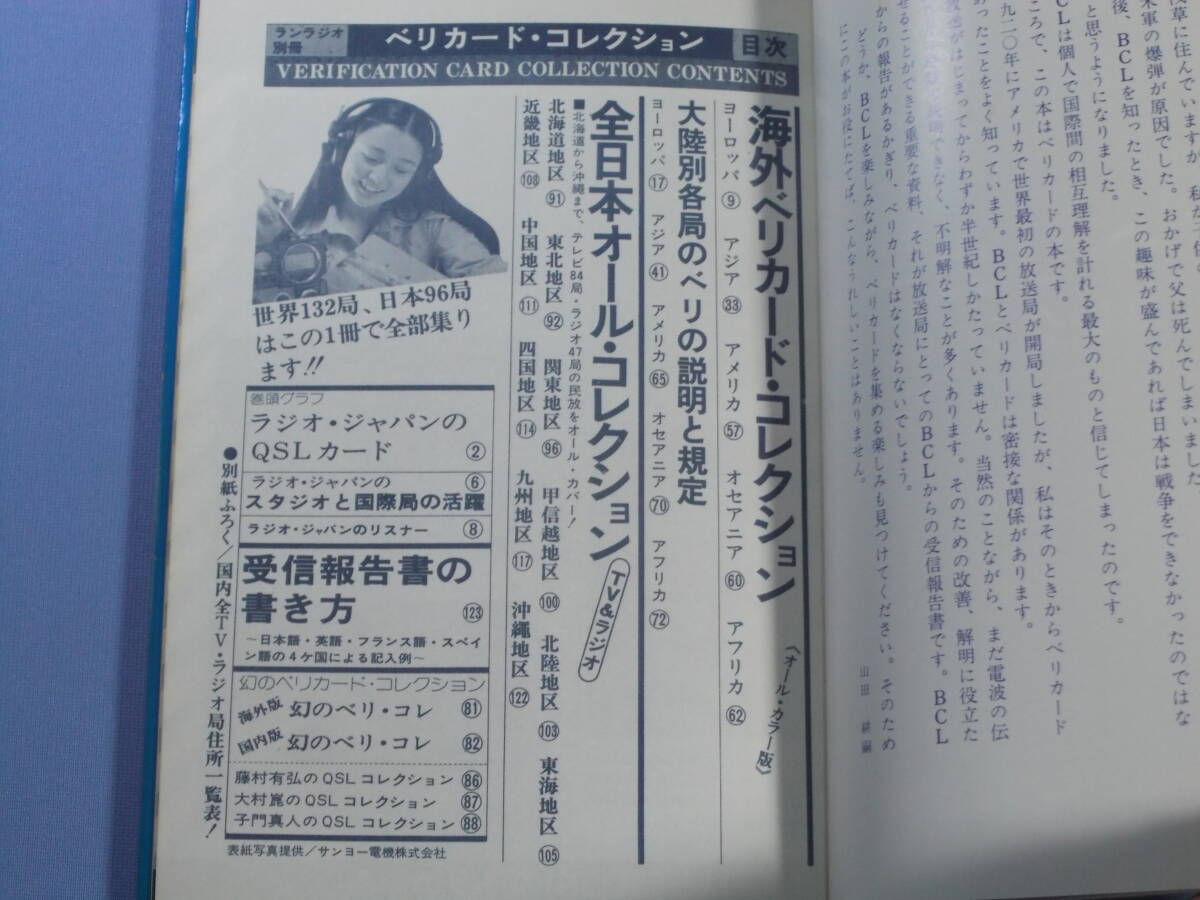 浅草に住んでいますが、私
米軍の爆弾が原因でした。おかげで父は死んでしまいました
後、BCLを知ったとき、この趣味が盛んであれば日本は戦争をできなかったのではな
と思うようになりました。
CLは個人で国際間の相互理解を計れる最大のものと信じてしまったのです。
ころで、この本はベリカードの本です。
九二〇年にアメリカで世界最初の放送局が開局しましたが、私はそのときからベリカード
あったことをよく知っています。BCLとベリカードは密接な関係があります。
放送がはじまってからわずか半世紀しかたっていません。当然のことながら、まだ電波の伝
明できなく、不明解なことが多くあります。そのための改善、解明に役立た
せることができる重要な資料、それが放送局にとってのBCLからの受信報告書です。BCL
からの報告があるかぎり、ベリカードはなくならないでしょう。
どうか、BCLを楽しみながら、ベリカードを集める楽しみも見つけてください。そのため
にこの本がお役にたてば、こんなうれしいことはありません。
山田 耕嗣
ランラジオ別冊
ベリカード・コレクション
目次
VERIFICATION CARD COLLECTION CONTENTS
海外ベリカード・コレクション
〈オール・カラー版〉
ヨーロッパ⑨ アジア㉝ アメリカ57 オセアニア60 アフリカ62
大陸別各局のベリの説明と規定
ヨーロッパ⑰ アジア㊶ アメリカ65 オセアニア70 アフリカ72
全日本オール・コレクション
TV&ラジオ
■北海道から沖縄まで、テレビ84局・ラジオ47局の民放をオール・カバー!
北海道地区91 東北地区92 関東地区96 甲信越地区100 北陸地区103 東海地区105
近畿地区108 中国地区111 四国地区114 九州地区117 沖縄地区122
世界132局、日本96局
はこの1冊で全部集り
ます!!
巻頭グラフ
ラジオ・ジャパンの
QSLカード ②
ラジオ・ジャパンの ⑥
スタジオと国際局の活躍
ラジオ・ジャパンのリスナー ⑧
受信報告書の
書き方 123
〜日本語・英語・フランス語・スペイ
ン語の4ケ国による記入例〜
幻のベリカード・コレクション
海外版 幻のベリ・コレ 81
国内版 幻のベリ・コレ 82
藤村有弘のQSLコレクション 86
大村崑のQSLコレクション 87
子門真人のQSLコレクション 88
●別紙ふろく/国内全TV・ラジオ局住所一覧表!
表紙写真提供/サンヨー電機株式会社